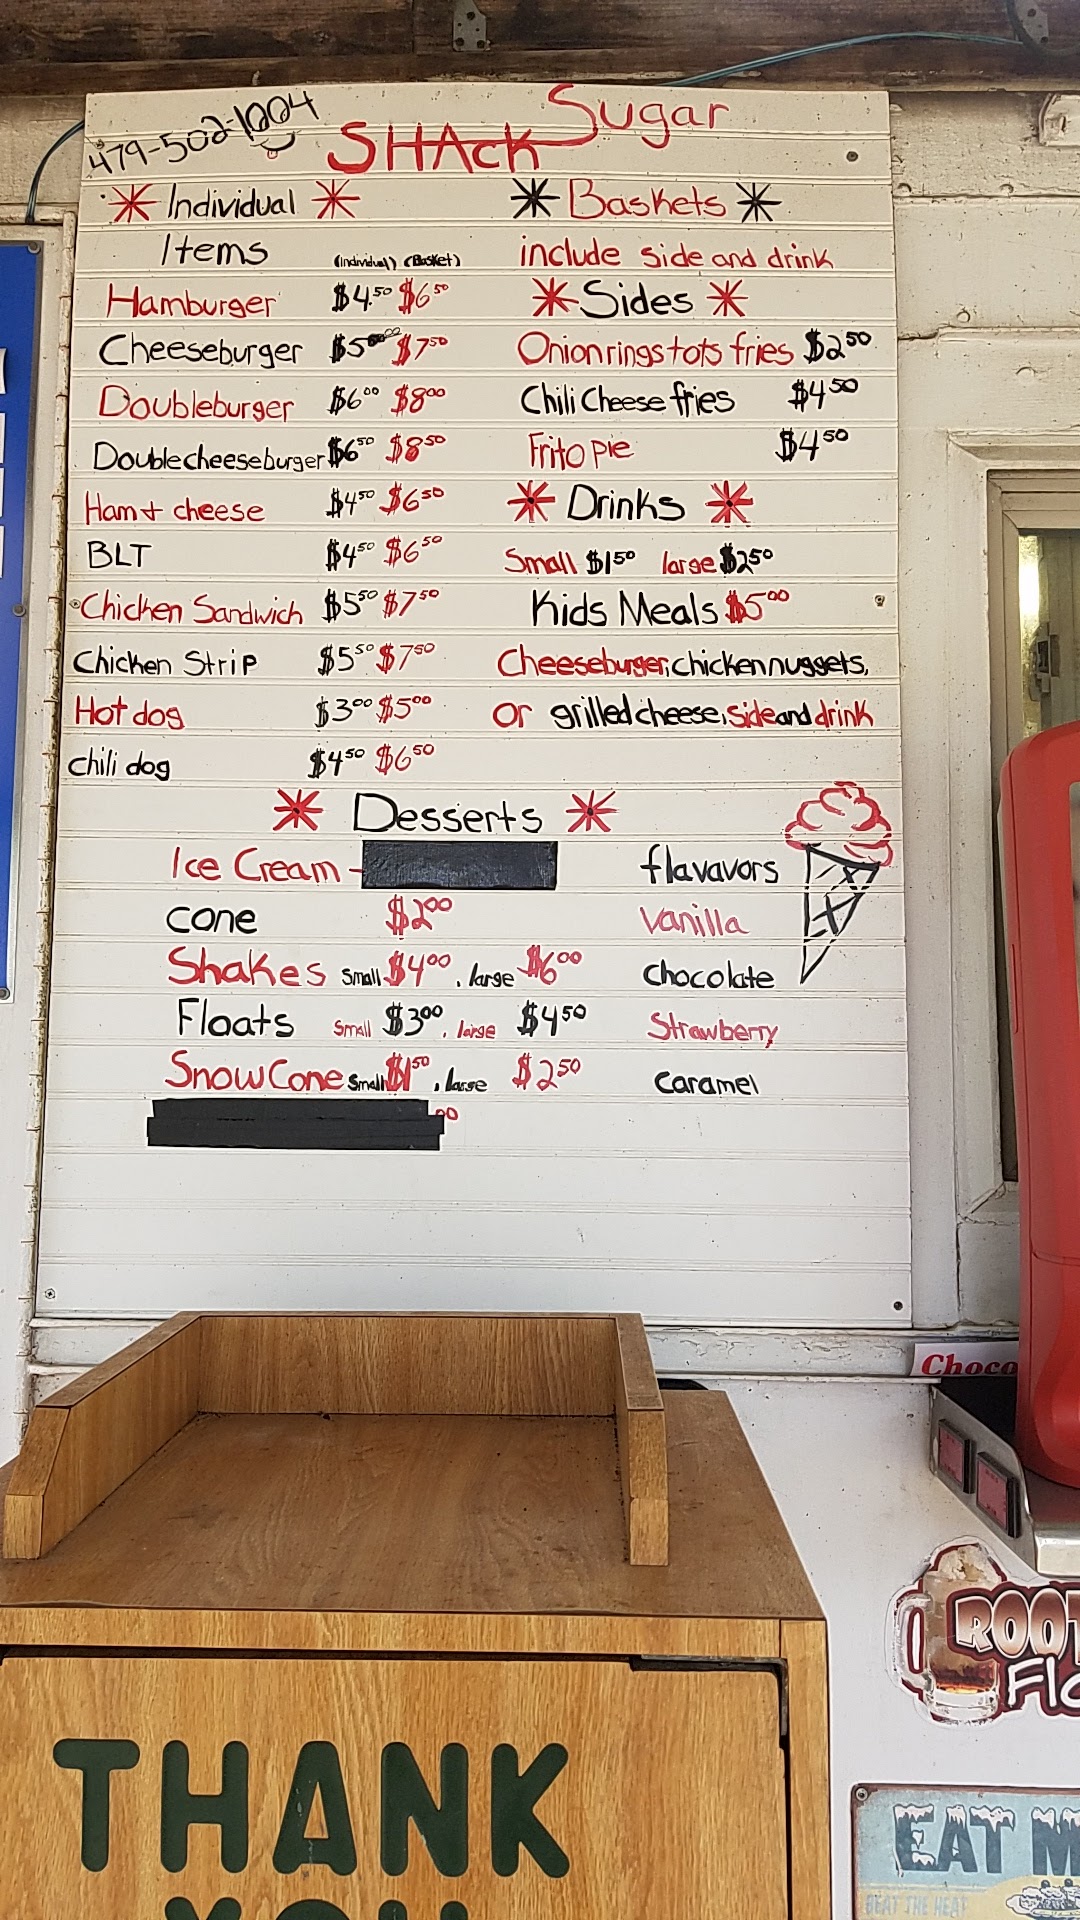 479-502-1004
Sugar
SHAcK
Individual
Items
(individual) (Basket)
Hamburger $4.50 $6.50
Cheeseburger $5 $7.50
Doubleburger $6.00 $8.00
Doublecheeseburger $6.50 $8.50
Ham + cheese $4.50 $6.50
BLT $4.50 $6.50
Chicken Sandwich $5.50 $7.50
Chicken Strip $5.50 $7.50
Hot dog $3.00 $5.00
chili dog $4.50 $6.50
Baskets
include side and drink
Sides
Onion rings tots fries $2.50
Chili Cheese fries $4.50
Frito pie $4.50
Drinks
Small $1.50 large $2.50
Kids Meals $5.00
Cheeseburger, chicken nuggets,
or grilled cheese, side and drink
Desserts
Ice Cream -
cone $2.00
Shakes Small $4.00, large $6.00
Floats Small $3.00, large $4.50
Snow Cone Small $1.50, large $2.50
00
flavavors
Vanilla
chocolate
Strawberry
caramel
Choco
ROOT
Flo
THANK
YOU
EAT M
BEAT THE HEAT